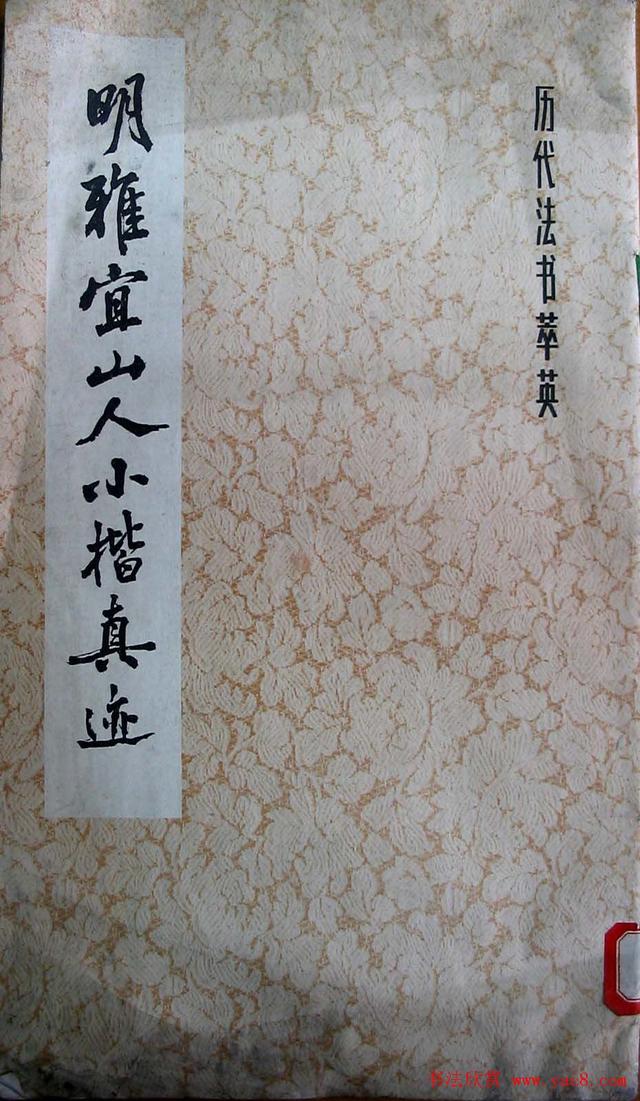 历代法书萃英
明雅宜山人小楷真迹
书法欣赏 www.yac8.com